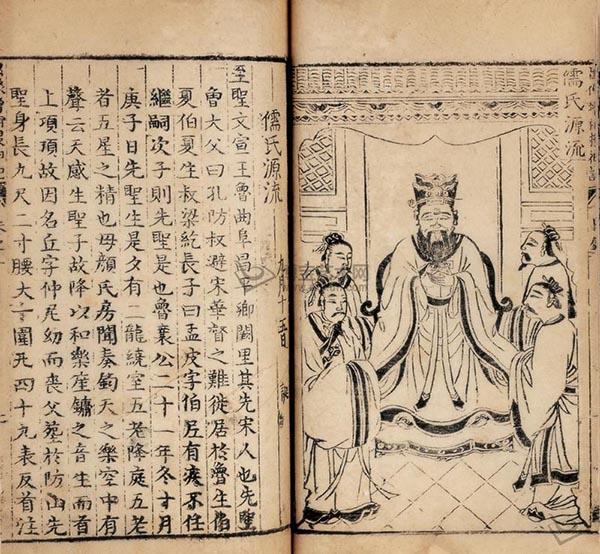 儒氏源流
儒氏源流
至聖文宣王魯曲阜昌平鄉闕里其先宋人也先聖
曾大父曰孔防叔避宋華督之難徙居於魯生伯
夏伯夏生叔梁紇長子曰孟皮字伯尼有疾不任
繼嗣次子則先聖是也魯襄公二十一年冬十月
庚子日先聖生是夕有二龍繞室五老降庭五老
者五星之精也母顏氏房聞奏鈞天之樂空中有
聲云天感生聖子故降以和樂笙鏞之音生而首
上頂頂故因名丘字仲尼幼而喪父葬於防山先
聖身長九尺二寸腰大十圍凡四十九表反首注